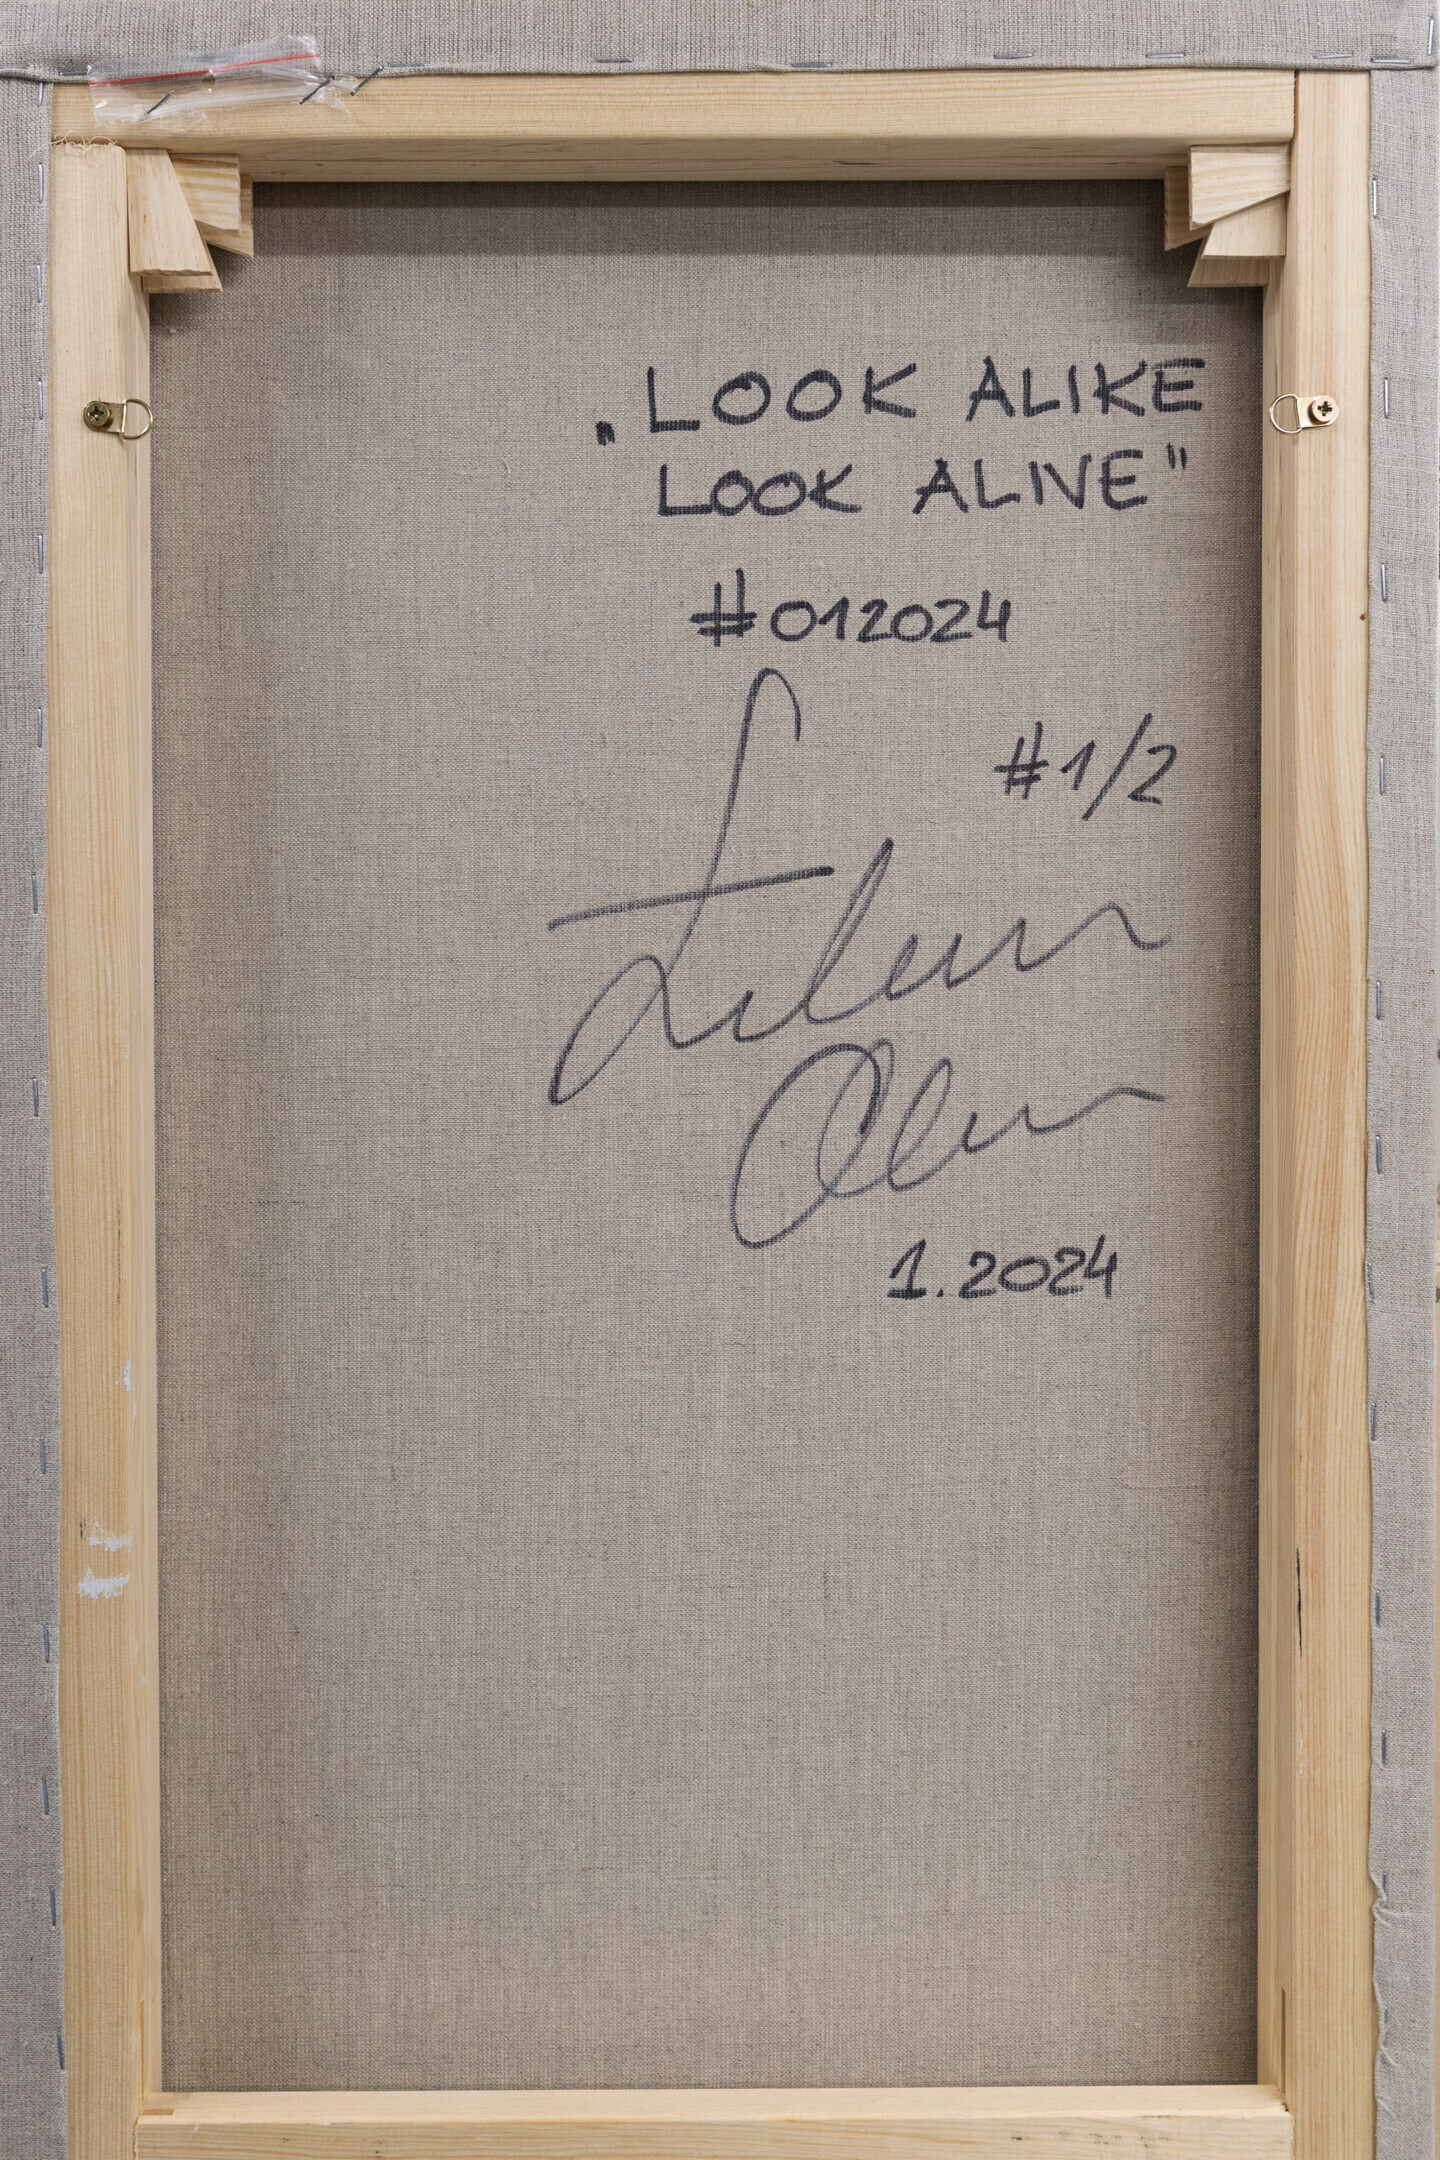 „LOOK ALIKE
LOOK ALIVE"
#012024
#1/2
1.2024